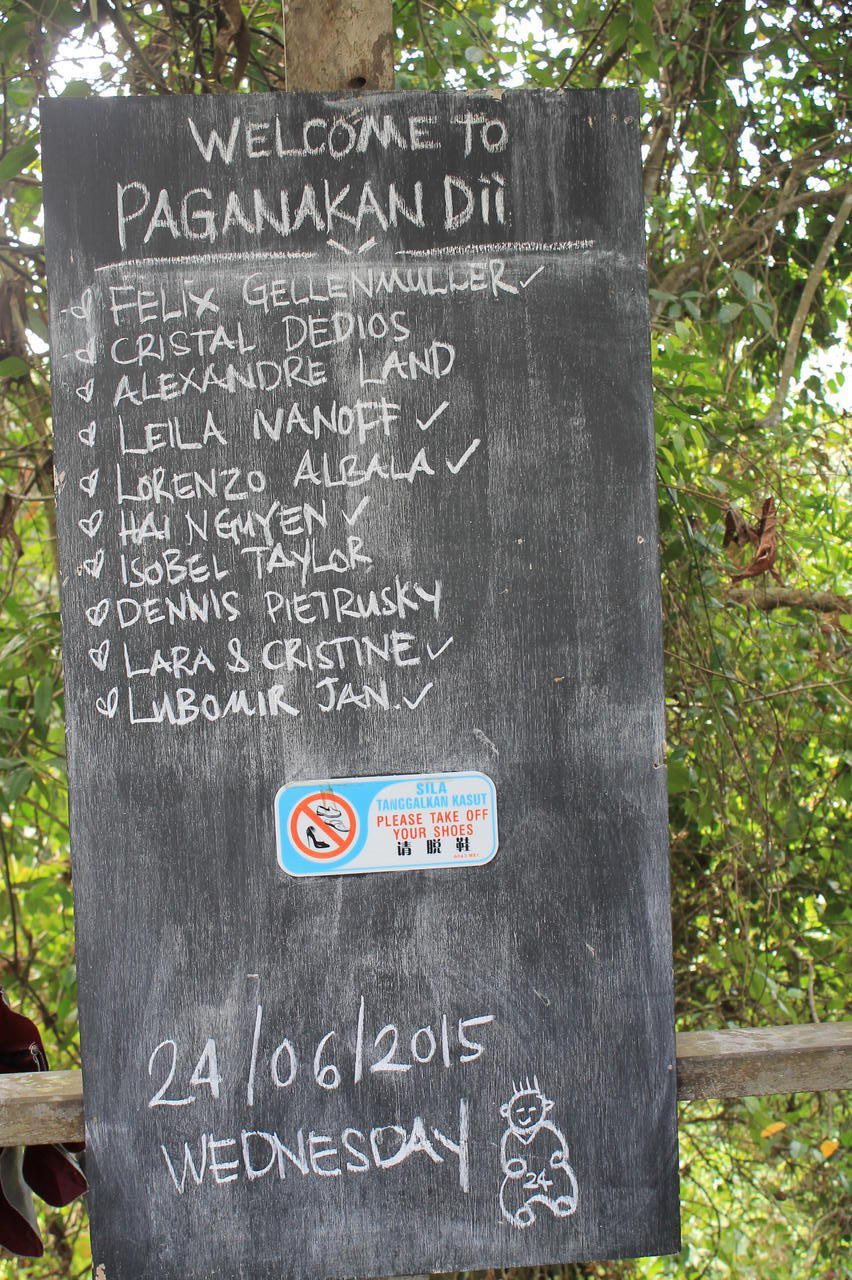 WELCOME TO
PAGANAKAN Dii
FELIX GELLENMULLER ✓
CRISTAL DEDIOS
ALEXANDRE LAND
LEILA IVANOFF ✓
LORENZO ALBALA ✓
HAI NGUYEN ✓
ISOBEL TAYLOR
DENNIS PIETRUSKY
LARA & CRISTINE ✓
LUBOMIR JAN. ✓
SILA
TANGGALKAN KASUT
PLEASE TAKE OFF
YOUR SHOES
请 脱 鞋
24/06/2015
WEDNESDAY
24